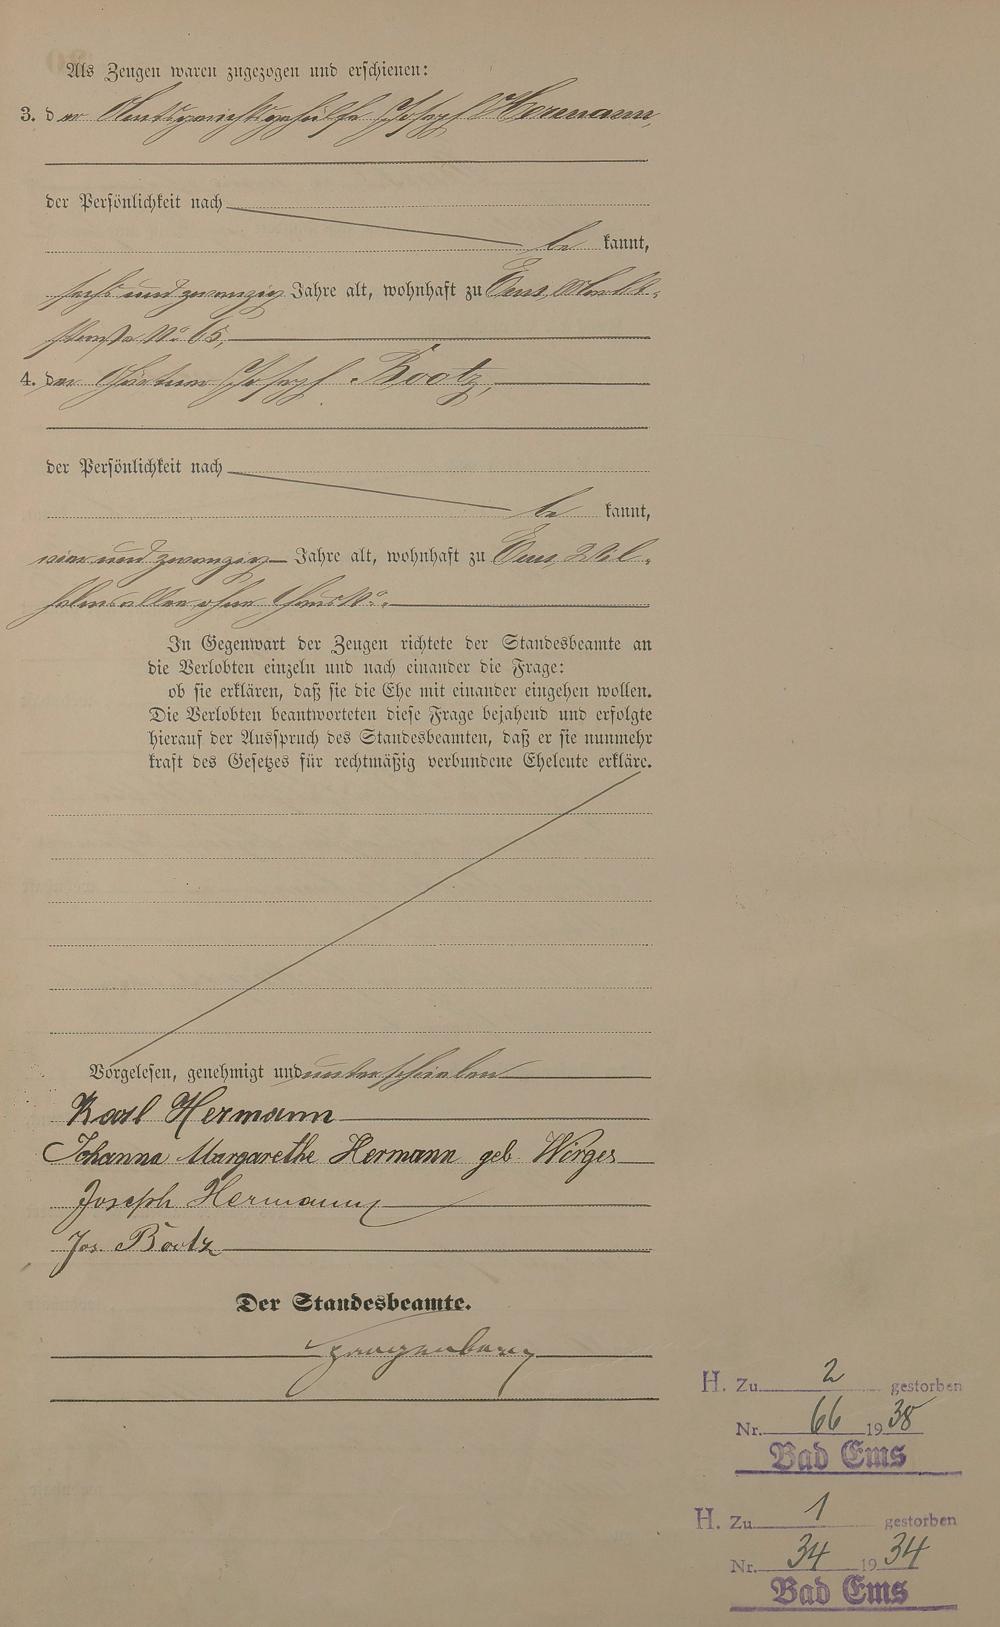 Als Zeugen waren zugezogen und erschienen:
3. der Amtsgerichtsgehülfe Joseph Hermann,
der Persönlichkeit nach
be kannt,
sechs und zwanzig Jahre alt, wohnhaft zu Ems,
straße No 65,
4. der Gärtner Joseph Bootz,
der Persönlichkeit nach
be kannt,
vier und zwanzig Jahre alt, wohnhaft zu Ems, Wil-
helmsallee ohne Haus No.
In Gegenwart der Zeugen richtete der Standesbeamte an
die Verlobten einzeln und nach einander die Frage:
ob sie erklären, daß sie die Ehe mit einander eingehen wollen.
Die Verlobten beantworteten diese Frage bejahend und erfolgte
hierauf der Ausspruch des Standesbeamten, daß er sie nunmehr
kraft des Gesetzes für rechtmäßig verbundene Eheleute erkläre.
Vorgelesen, genehmigt und unterschrieben
Karl Hermann
Johanna Margarethe Hermann geb. Wirges
Joseph Hermann
Jos. Bootz
Der Standesbeamte.
H. Zu 2 gestorben
Nr. 66 1938
Bad Ems
H. Zu 1 gestorben
Nr. 34 1934
Bad Ems